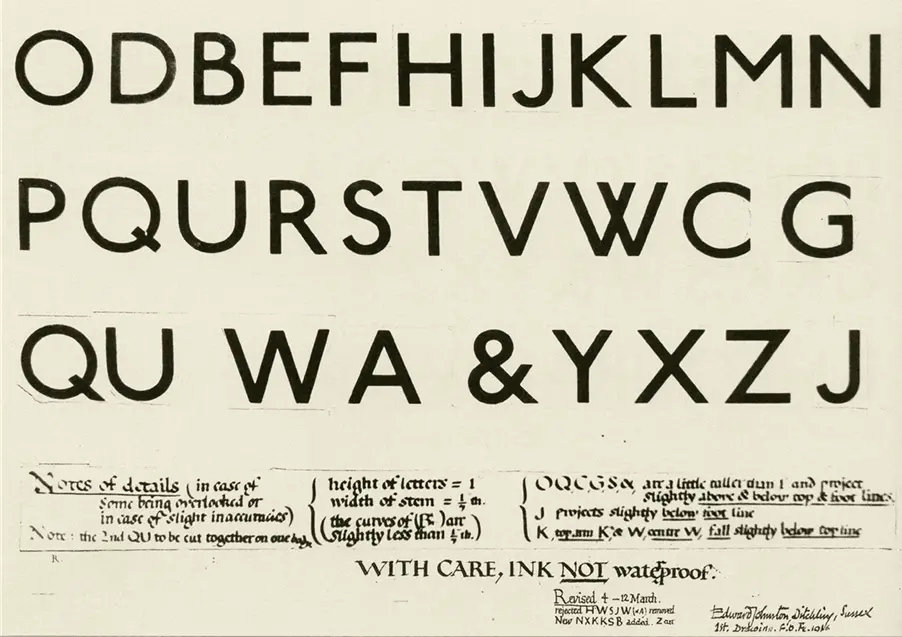 ODBEFHIJKLMN
PQURSTVWCG
QU WA &YXZJ
Notes of details (in case of
some being overlooked or
in case of slight inaccuracies)
Note: the 2nd QU to be cut together on one
height of letters = 1
width of stem = 1/7 th.
(the curves of (B, ) are
slightly less than 1/7 th.)
O Q C G S & are a little taller than 1 and project
slightly above & below top & foot lines.
J projects slightly below foot line
K top arm K & W centre W, fall slightly below top line
R.
WITH CARE, INK NOT waterproof.
Revised 4 – 12 March.
rejected H W S J W (& A) removed
New N X K K S B added. Z
Edward Johnston, Ditchling, Sussex
1st. Drawing.